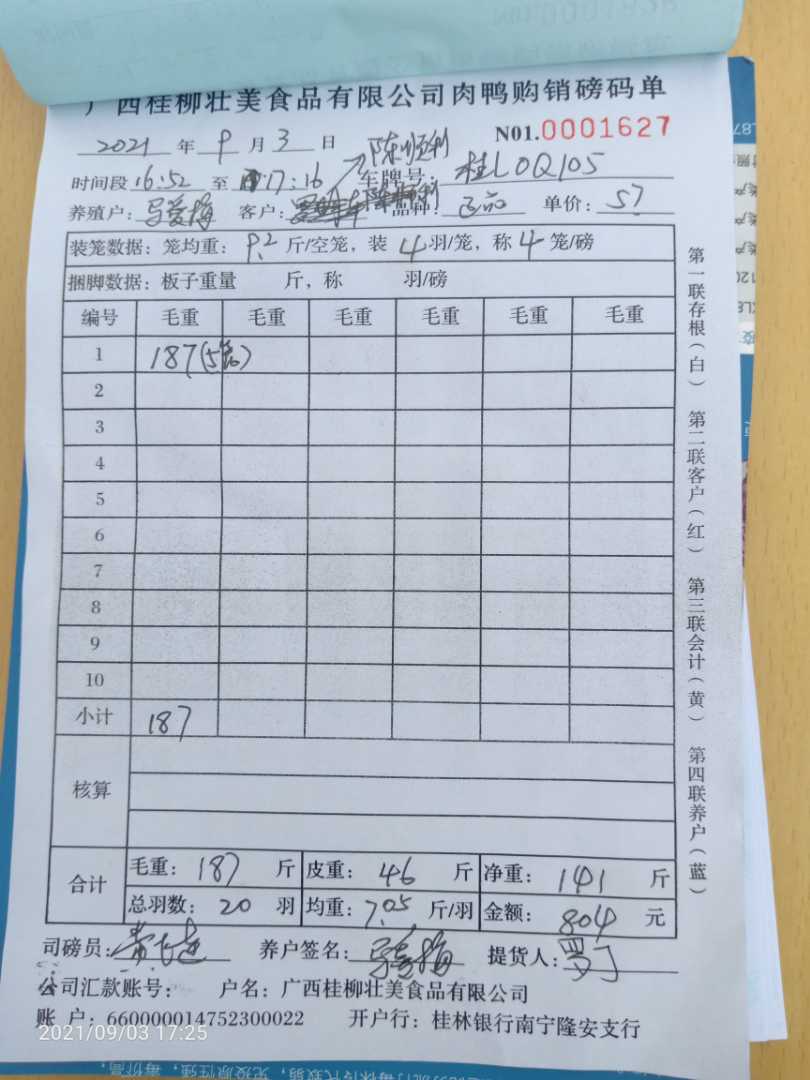 广西桂柳壮美食品有限公司肉鸭购销磅码单
2021 年 9 月 3 日 陈顺利 N01.0001627
时间段 16:52 至 17:16 车牌号: 桂L0Q105
养殖户: 马爱梅 客户: 品种: 单价: 57
装笼数据: 笼均重: 9.2 斤/空笼, 装 4 羽/笼, 称 4 笼/磅
捆脚数据: 板子重量 斤, 称 羽/磅
编号 毛重 毛重 毛重 毛重 毛重 毛重
1 187(5笼)
2
3
4
5
6
7
8
9
10
小计 187
核算
合计 毛重: 187 斤 皮重: 46 斤 净重: 141 斤
总羽数: 20 羽 均重: 7.05 斤/羽 金额: 804 元
司磅员: 养户签名: 马爱梅 提货人:
公司汇款账号: 户名: 广西桂柳壮美食品有限公司
账 户: 660000014752300022 开户行: 桂林银行南宁隆安支行
2021/09/03 17:25
第一联存根(白) 第二联客户(红) 第三联会计(黄) 第四联养户(蓝)